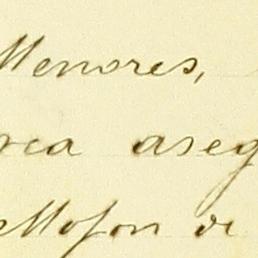 Menores,
rca aseg
Mojon de